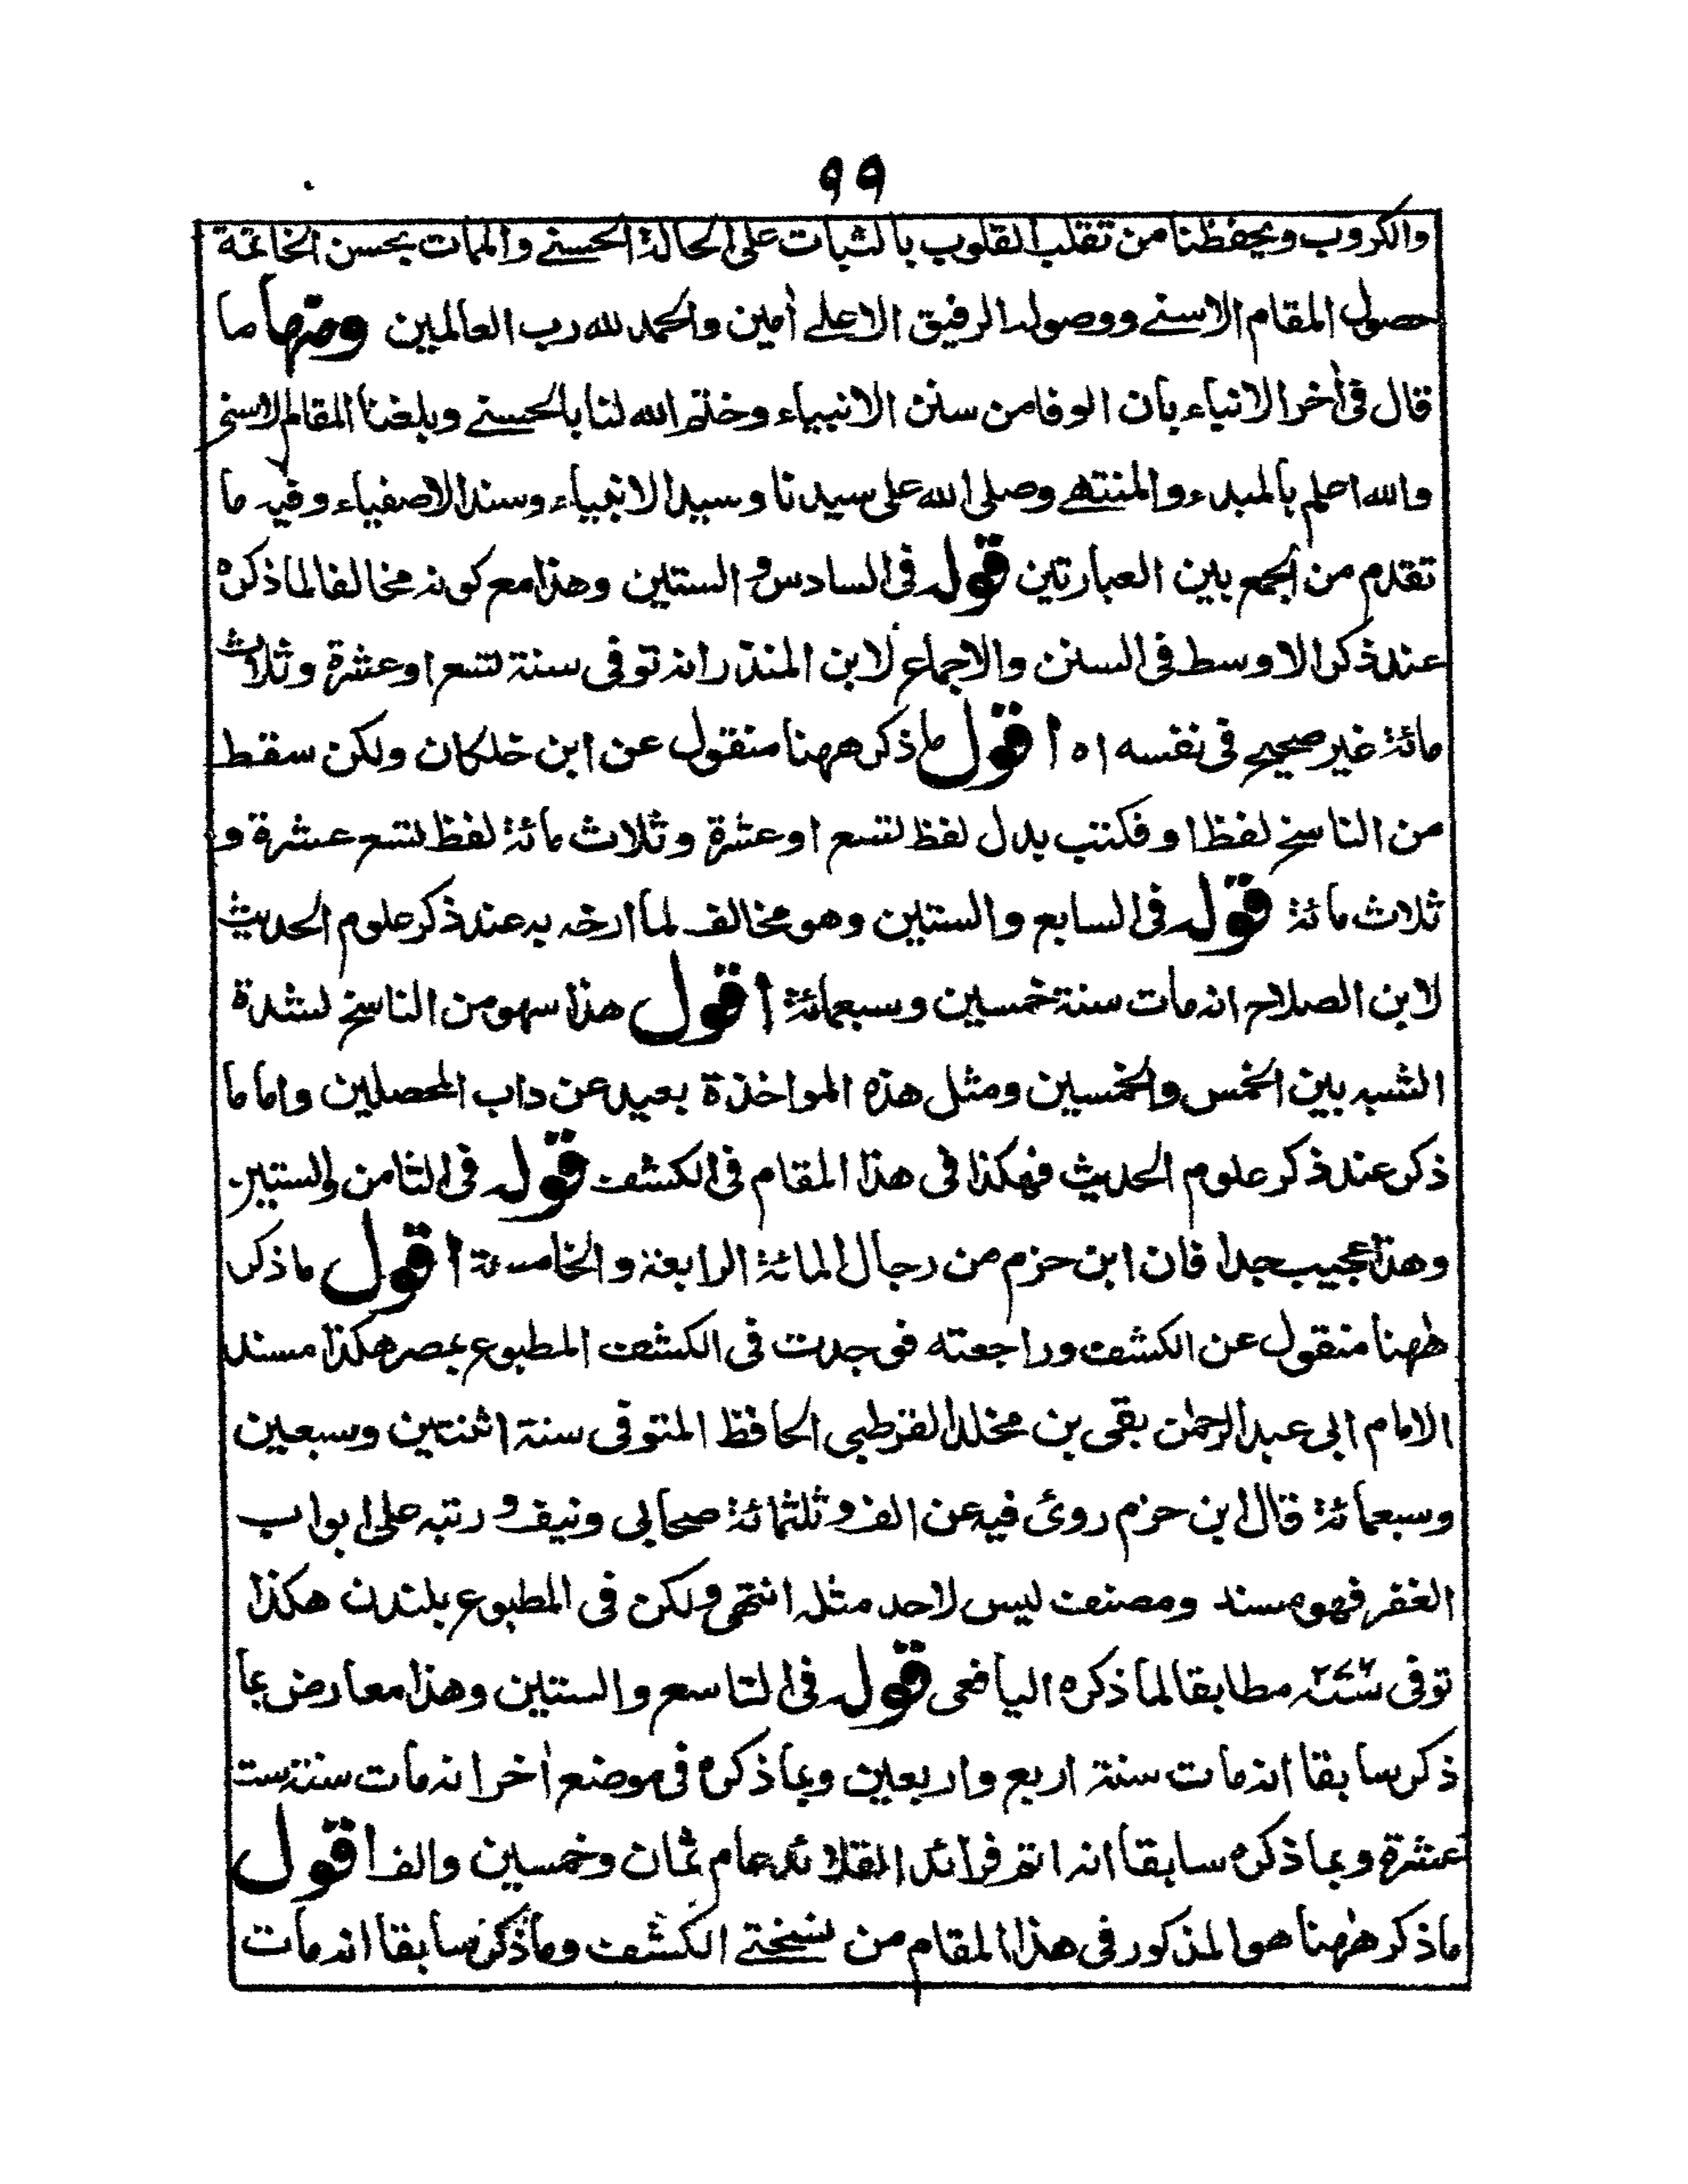 ٩٩
والكروب ويحفظنا من تقلب القلوب بالثبات على الحالة الحسنے والممات بحسن الخاتمة
حصول المقام الاسنے ووصوله الرفيق الاعلے أمين والحمد لله رب العالمين ومنها ما
قال فى أخر الانباء بان الوفا من سنن الانبياء وختم الله لنا بالحسنے وبلغنا المقام الاسنے
والله اعلم بالمبدء والمنتهے وصلى الله على سيدنا وسيد الانبياء وسند الاصفياء وفيه ما
تقدم من الجمع بين العبارتين قوله فى السادس والستين وهذا مع كونه مخالفا لما ذكره
عند ذكر الاوسط فى السنن والاجماع لابن المنذر انه توفى سنة تسع او عشرة وثلاث
مائة غير صحيح فى نفسه اه اقول ما ذكر ههنا منقول عن ابن خلكان ولكن سقط
من الناسخ لفظ او فكتب بدل لفظ تسع او عشرة وثلاث مائة لفظ تسع عشرة و
ثلاث مائة قوله فى السابع والستين وهو مخالف لما ارخه به عند ذكر علوم الحديث
لابن الصلاح انه مات سنة خمسين وسبعمائة اقول هذا سهو من الناسخ لشدة
الشبه بين الخمس والخمسين ومثل هذه المواخذة بعيد عن داب المحصلين واما ما
ذكر عند ذكر علوم الحديث فهكذا فى هذا المقام فى الكشف قوله فى الثامن والستين
وهذا عجيب جدا فان ابن حزم من رجال المائة الرابعة والخامسة اقول ما ذكر
ههنا منقول عن الكشف وراجعته فوجدت فى الكشف المطبوع بمصر هكذا مسند
الامام ابى عبد الرحمٰن بقى بن مخلد القرطبى الحافظ المتوفى سنة اثنتين وسبعين
وسبعمائة قال ابن حزم روىٰ فيه عن الف وثلثمائة صحابى ونيف ورتبه على ابواب
الفقه فهو مسند ومصنف ليس لاحد مثله انتهى ولكن فى المطبوع بلندن هكذا
توفى سنة ٢٧٢ مطابقا لما ذكره اليافعى قوله فى التاسع والستين وهذا معارض بما
ذكر سابقا انه مات سنة اربع واربعين وبما ذكره فى موضع اٰخر انه مات سنة ست
عشرة وبما ذكره سابقا انه اتم فرائد القلائد عام ثمان وخمسين والف اقول
ما ذكر ههنا هو المذكور فى هذا المقام من نسختے الكشف وما ذكر سابقا انه مات